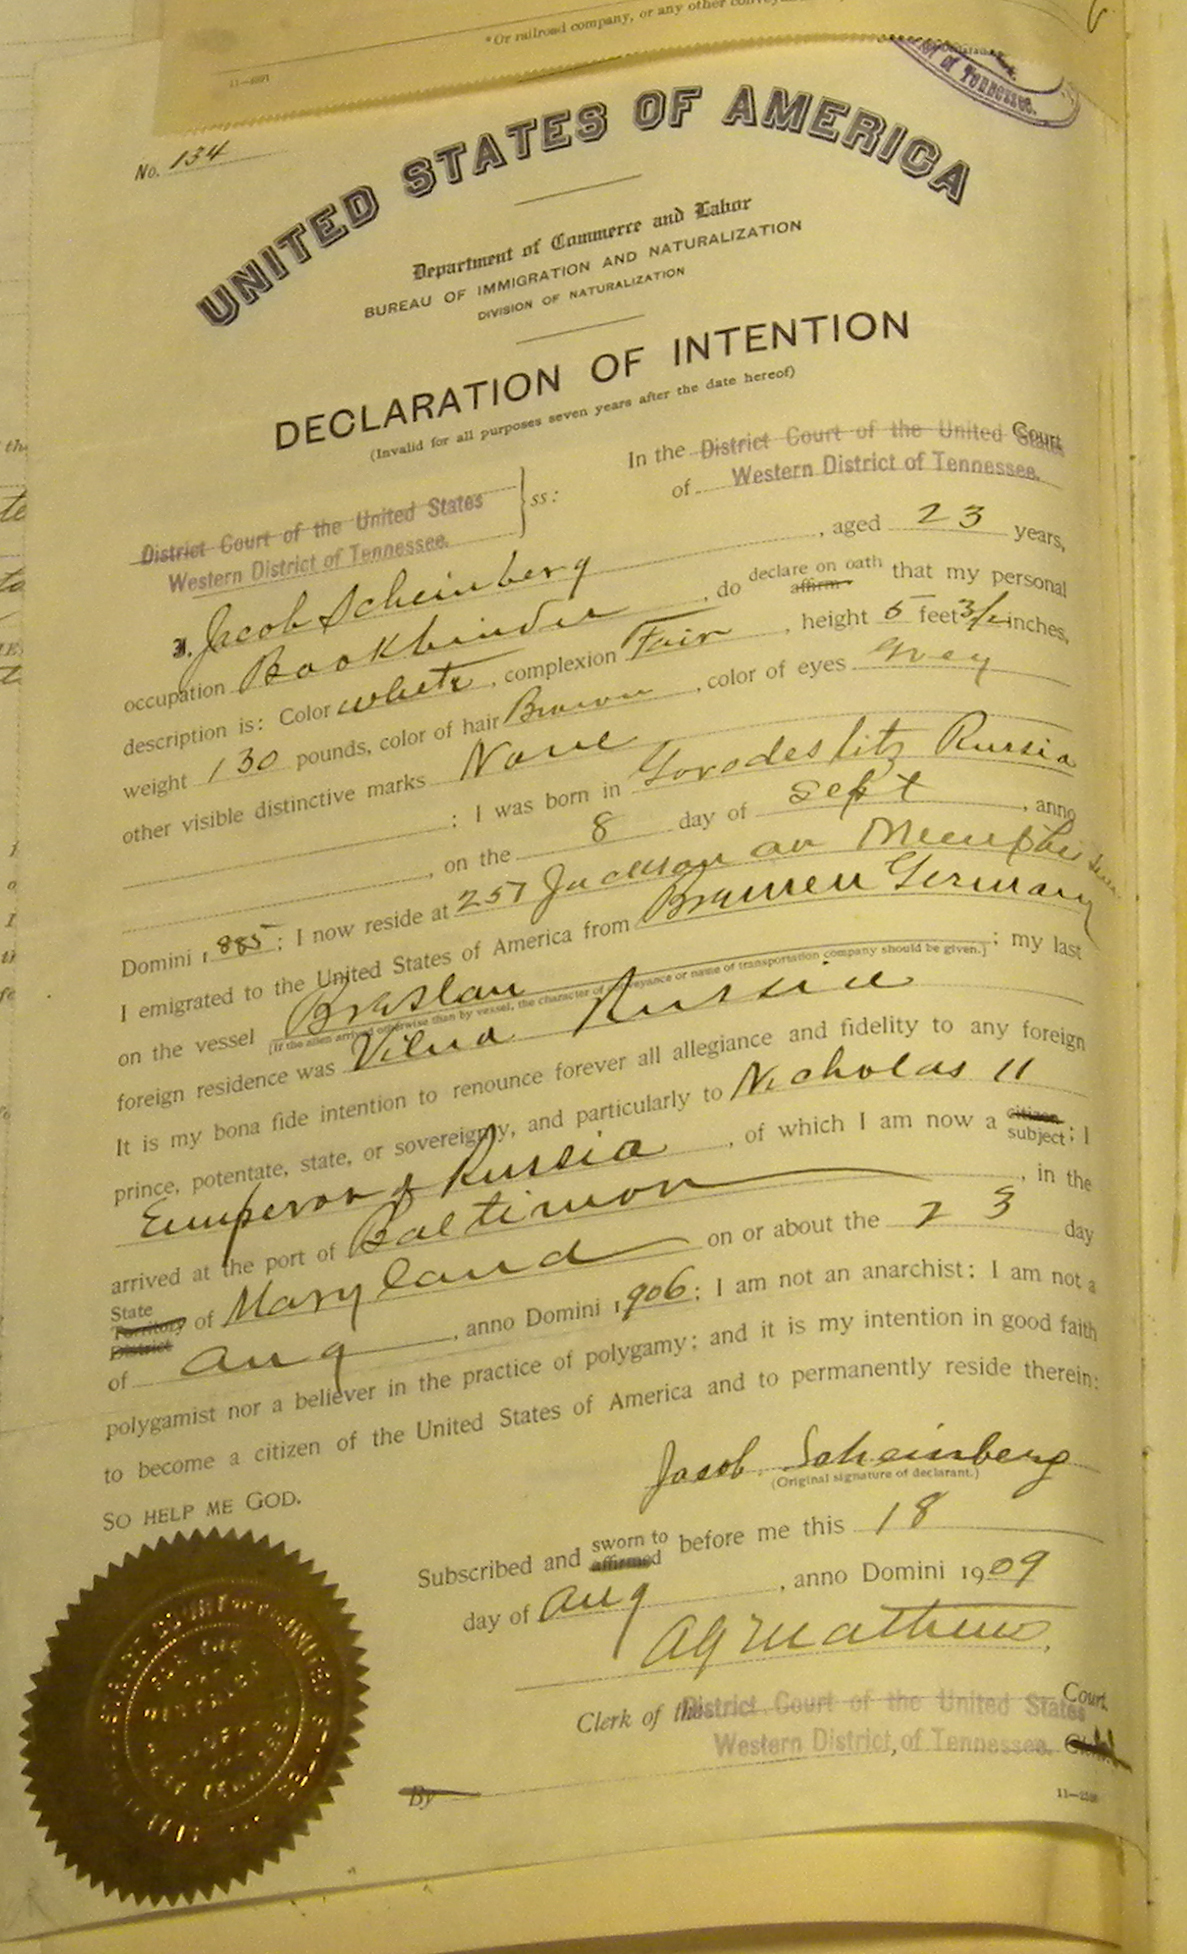 *Or railroad company, or any other
11—2591
of Tennessee.
No. 134
UNITED STATES OF AMERICA
Department of Commerce and Labor
BUREAU OF IMMIGRATION AND NATURALIZATION
DIVISION OF NATURALIZATION
DECLARATION OF INTENTION
(Invalid for all purposes seven years after the date hereof)
In the District Court of the United States Court
of Western District of Tennessee.
District Court of the United States
Western District of Tennessee. ss:
I, Jacob Scheinberg, aged 23 years,
occupation Bookbinder, do declare on oath affirm that my personal
description is: Color white, complexion Fair, height 5 feet 3½ inches,
weight 130 pounds, color of hair Brown, color of eyes grey
other visible distinctive marks None
: I was born in Gorodeslitz Russia
, on the 8 day of Sept, anno
Domini 1885; I now reside at 257 Jackson av Memphis Tenn
I emigrated to the United States of America from Bremen Germany
on the vessel Breslau; my last
(If the alien arrived otherwise than by vessel, the character of conveyance or name of transportation company should be given.)
foreign residence was Vilna Russia
It is my bona fide intention to renounce forever all allegiance and fidelity to any foreign
prince, potentate, state, or sovereignty, and particularly to Nicholas II
Emperor of Russia, of which I am now a citizen subject; I
arrived at the port of Baltimore, in the
State Territory District of Maryland on or about the 23 day
of Aug, anno Domini 1906; I am not an anarchist; I am not a
polygamist nor a believer in the practice of polygamy; and it is my intention in good faith
to become a citizen of the United States of America and to permanently reside therein:
SO HELP ME GOD.
Jacob Scheinberg
(Original signature of declarant.)
Subscribed and sworn to affirmed before me this 18
day of Aug, anno Domini 1909
AG Mathews.
Clerk of the District Court of the United States Court.
Western District of Tennessee.
By